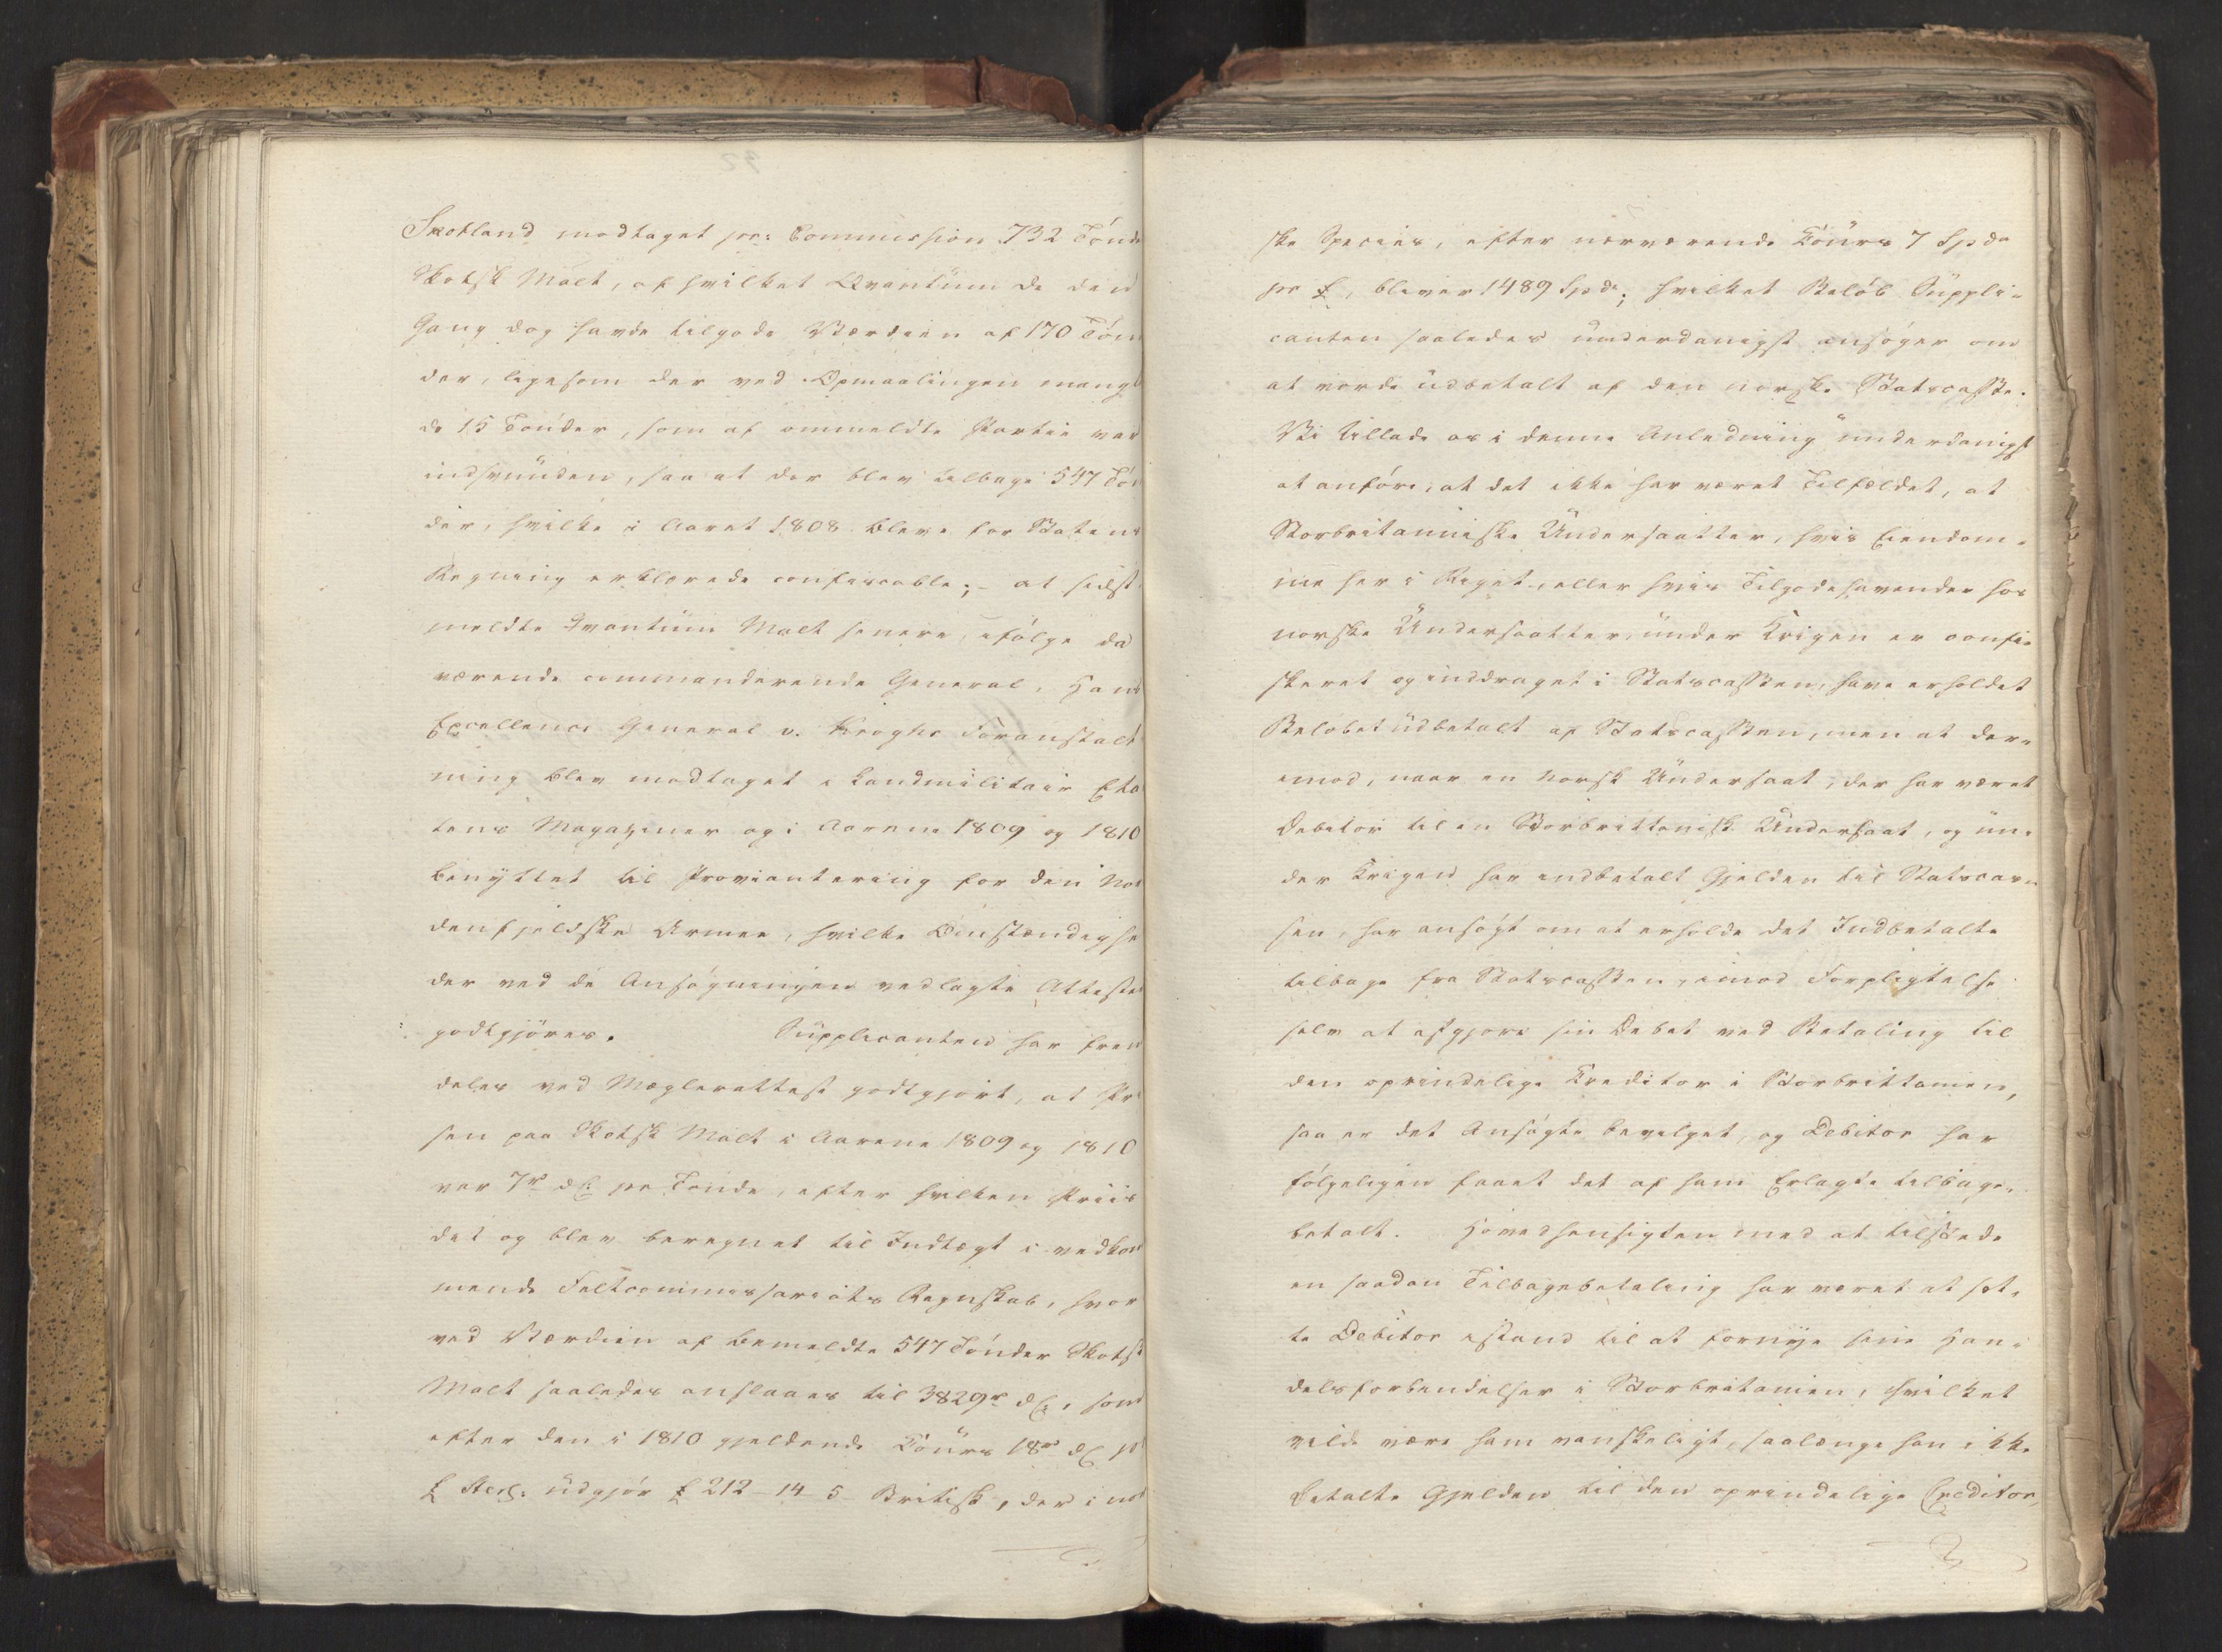 Skotland modtaget pr: Commission 732 Tønde
Skotsk Malt, af hvilket Qvantum de den
Gang dog havde tilgode Værdien af 170 Tøn
der, ligesom der ved Opmaalingen mang
de 15 Tønder, som af ommeldte Partie var
indsvunden, saa at der blev tilbage 547 Tøn
der, hvilke i Aaret 1808 bleve for Statens
Regning erklærede confiscable; - at sidst
meldte Qvantum Malt senere, ifølge da
værende commanderende General, Hans
Excellence General v. Kroghs Foranstalt
ning blev modtaget i Landmilitair Eta
tens Magaziner og i Aarene 1809 og 1810
benyttet til Proviantering for den Nor
denfjeldske Armee, hvilke Omstændighe
der ved de Ansøgningen vedlagte Attester
godtgjøres. Supplicanten har frem
deles ved Mæglerattest godtgjort, at Pri
sen paa Skotsk Malt i Aarene 1809 og 1810
var 7 r dlr pr Tønde, efter hvilken Priis
det og blev beregnet til Indtægt i vedkom
mende Feltcommissariats Regnskab, hvor
ved Værdien af bemeldte 547 Tønder Skotsk
Malt saaledes anslaaes til 3829 r dlr, som
efter den i 1810 gjeldende Cours 18 r dlr pr
£ Sterl: udgjør £ 212 - 14 - 5 Britisk, der i nor
ske Species, efter nærværende Cours 7 Spdr
pr £, bliver 1489 Spdr; hvilket Beløb Suppli=
canten saaledes underdanigst ansøger om
at vorde udbetalt af den norske Statscasse.
Vi tillade os i denne Anledning underdanigst
at anføre, at det ikke har været Tilfældet, at
Storbritanniske Undersaatter, hvis Eiendom=
me her i Riget, eller hvis Tilgodehavender hos
norske Undersaatter under Krigen er confi=
skeret og inddraget i Statscassen, have erholdet
Beløbet udbetalt af Statscassen, men at der=
imod, naar en Norsk Undersaat, der har været
Debitor til en Storbrittanisk Undersaat, og un=
der Krigen har indbetalt Gjelden til Statscas=
sen, har ansøgt om at erholde det Indbetalte
tilbage fra Statscassen, imod Forpligtelse
selv at afgjøre sin Debet ved Betaling til
den oprindelige Creditor i Storbrittanien,
saa er det Ansøgte bevilget, og Debitor har
følgeligen faaet det af ham Erlagte tilbage=
betalt. Hovedhensigten med at tilstede
en saadan Tilbagebetaling har været at sæt=
te Debitor istand til at fornye sine Han=
delsforbindelser i Storbritanien, hvilket
vilde være ham vanskeligt, saalænge han ikke
betalte Gjelden til den oprindelige Creditor,